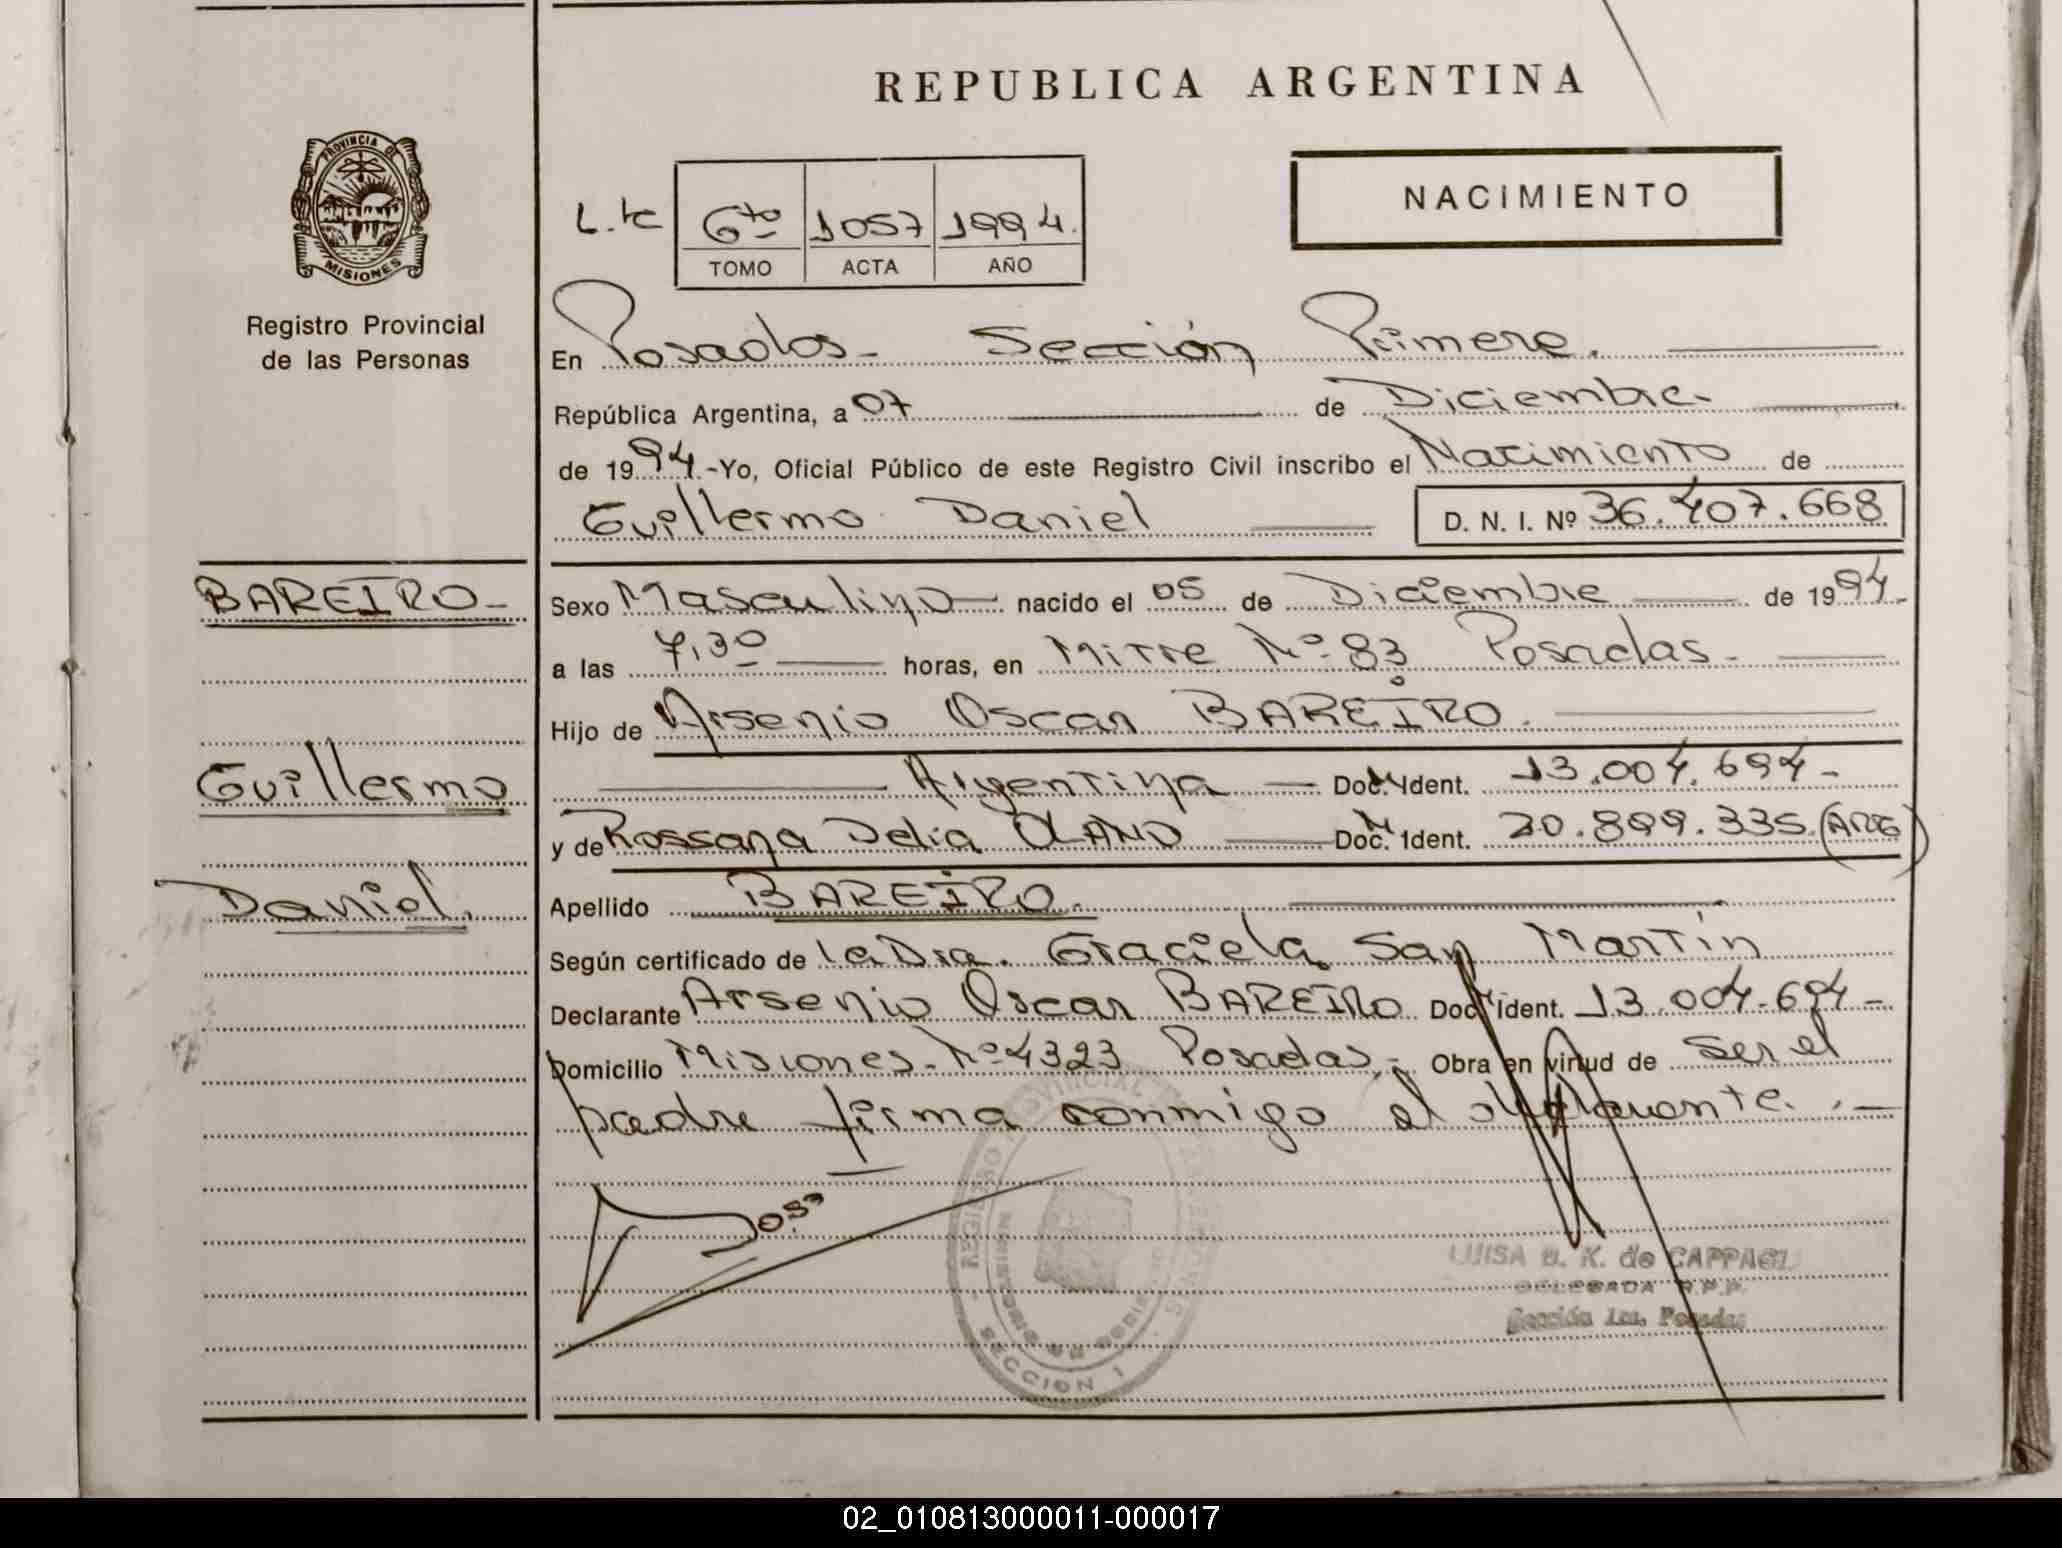 REPUBLICA ARGENTINA
PROVINCIA DE
MISIONES
Registro Provincial
de las Personas
6to 1057 1994.
TOMO ACTA AÑO
NACIMIENTO
En Posadas - Sección Primera.
República Argentina, a 07 de Diciembre.
de 1994.-Yo, Oficial Público de este Registro Civil inscribo el Nacimiento de
Guillermo Daniel D. N. I. Nº 36.407.668
BAREIRO
Sexo Masculino nacido el 05 de Diciembre de 1994.
a las 7,30 horas, en Mitre Nº 83 Posadas.
Hijo de Arsenio Oscar BAREIRO.
Guillermo
Argentina Doc. Ident. 13.004.694-
y de Rossana Delia OLANO Doc. Ident. 20.899.335.(ARG)
Daniel.
Apellido BAREIRO.
Según certificado de la Dra. Graciela San Martín
Declarante Arsenio Oscar BAREIRO Doc. Ident. 13.004.694-
Domicilio Misiones Nº 4323 Posadas.- Obra en virtud de ser el
padre firma conmigo el declarante.-
REGISTRO PROVINCIAL
SECCION 1
LUISA K. de
DELEGADA R.P.P.
Sección 1ra. Posadas
02_010813000011-000017